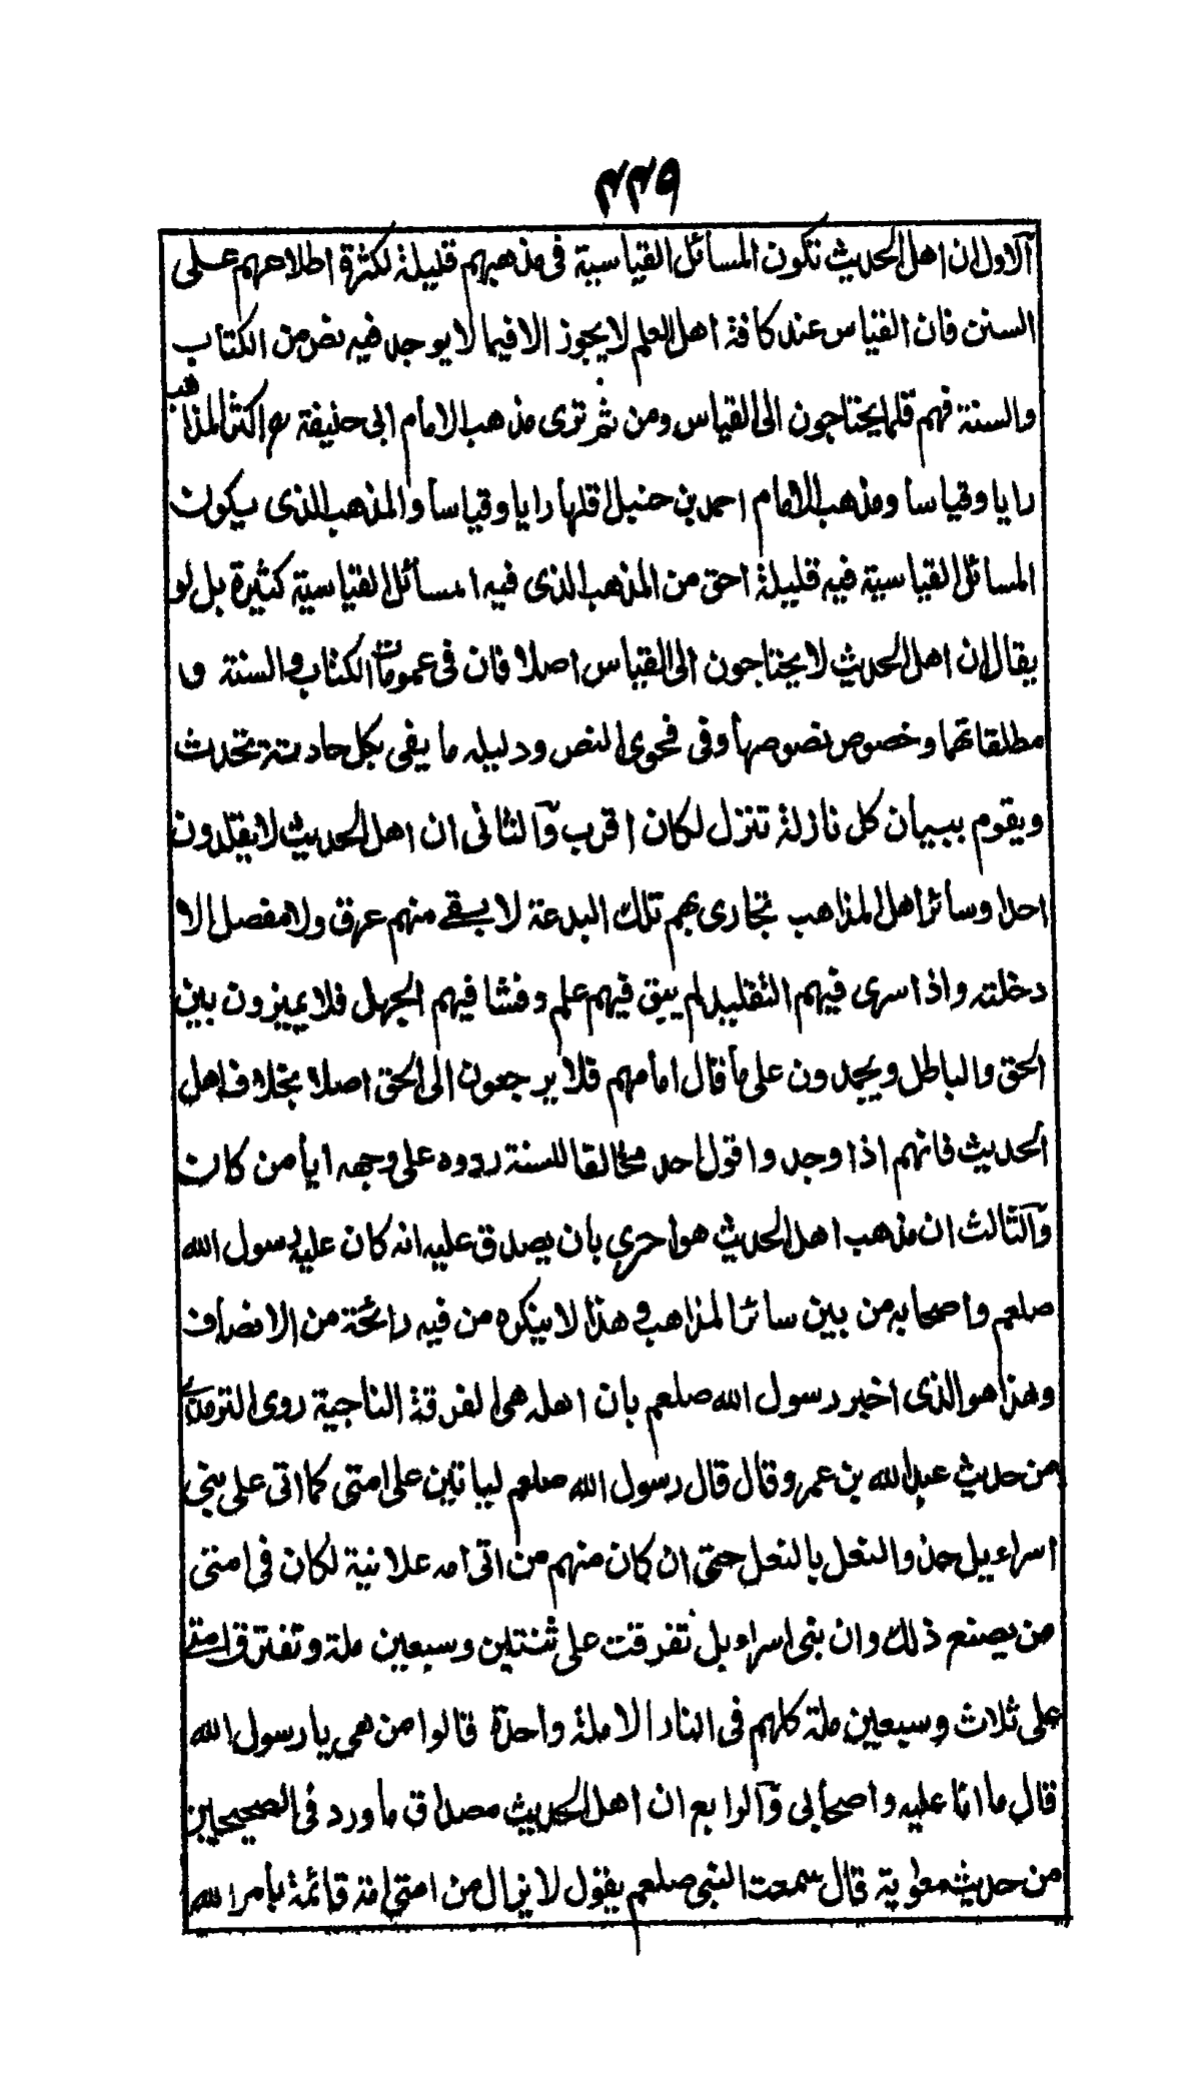 ٤٤٩
آلاول ان اهل الحديث تكون المسائل القياسية فى مذهبهم قليلة لكثرة اطلاعهم على
السنن فان القياس عند كافة اهل العلم لا يجوز الا فيما لا يوجد فيه نص من الكتاب
والسنة فهم قلما يحتاجون الى القياس ومن ثم ترى مذهب الامام ابى حنيفة رح اكثر المذاهب
رايا وقياسا ومذهب الامام احمد بن حنبل اقلها رايا وقياسا والمذهب الذى يكون
المسائل القياسية فيه قليلة احق من المذهب الذى فيه المسائل القياسية كثيرة بل لو
يقال ان اهل الحديث لا يحتاجون الى القياس اصلا فان فى عمومات الكتاب والسنة و
مطلقاتهما وخصوص نصوصها وفى فحوى النص ودليله ما يفى بكل حادثة تحدث
ويقوم ببيان كل نازلة تنزل لكان اقرب وآلثانى ان اهل الحديث لا يقلدون
احدا وسائر اهل المذاهب تجارى بهم تلك البدعة لا يبقى منهم عرق ولا مفصل الا
دخلته واذا سرى فيهم التقليد لم يبق فيهم علم وفشا فيهم الجهل فلا يميزون بين
الحق والباطل ويجمدون على ما قال امامهم فلا يرجعون الى الحق اصلا بخلاف اهل
الحديث فانهم اذا وجدوا قول احد مخالفا للسنة ردوه على وجهه ايا من كان
وآلثالث ان مذهب اهل الحديث هو احرى بان يصدق عليه انه كان عليه رسول الله
صلعم واصحابه من بين سائر المذاهب وهذا لا ينكره من فيه رائحة من الانصاف
وهذا هو الذى اخبر رسول الله صلعم بان اهله هى الفرقة الناجية روى الترمذى
من حديث عبد الله بن عمرو قال قال رسول الله صلعم لياتين على امتى كما اتى على بنى
اسراءيل حذو النعل بالنعل حتى ان كان منهم من اتى امه علانية لكان فى امتى
من يصنع ذلك وان بنى اسراءيل تفرقت على ثنتين وسبعين ملة وتفترق امتى
على ثلاث وسبعين ملة كلهم فى النار الا ملة واحدة قالوا من هى يا رسول الله
قال ما انا عليه واصحابى وآلرابع ان اهل الحديث مصداق ما ورد فى الصحيحين
من حديث معٰوية قال سمعت النبى صلعم يقول لا يزال من امتى امة قائمة بامر الله